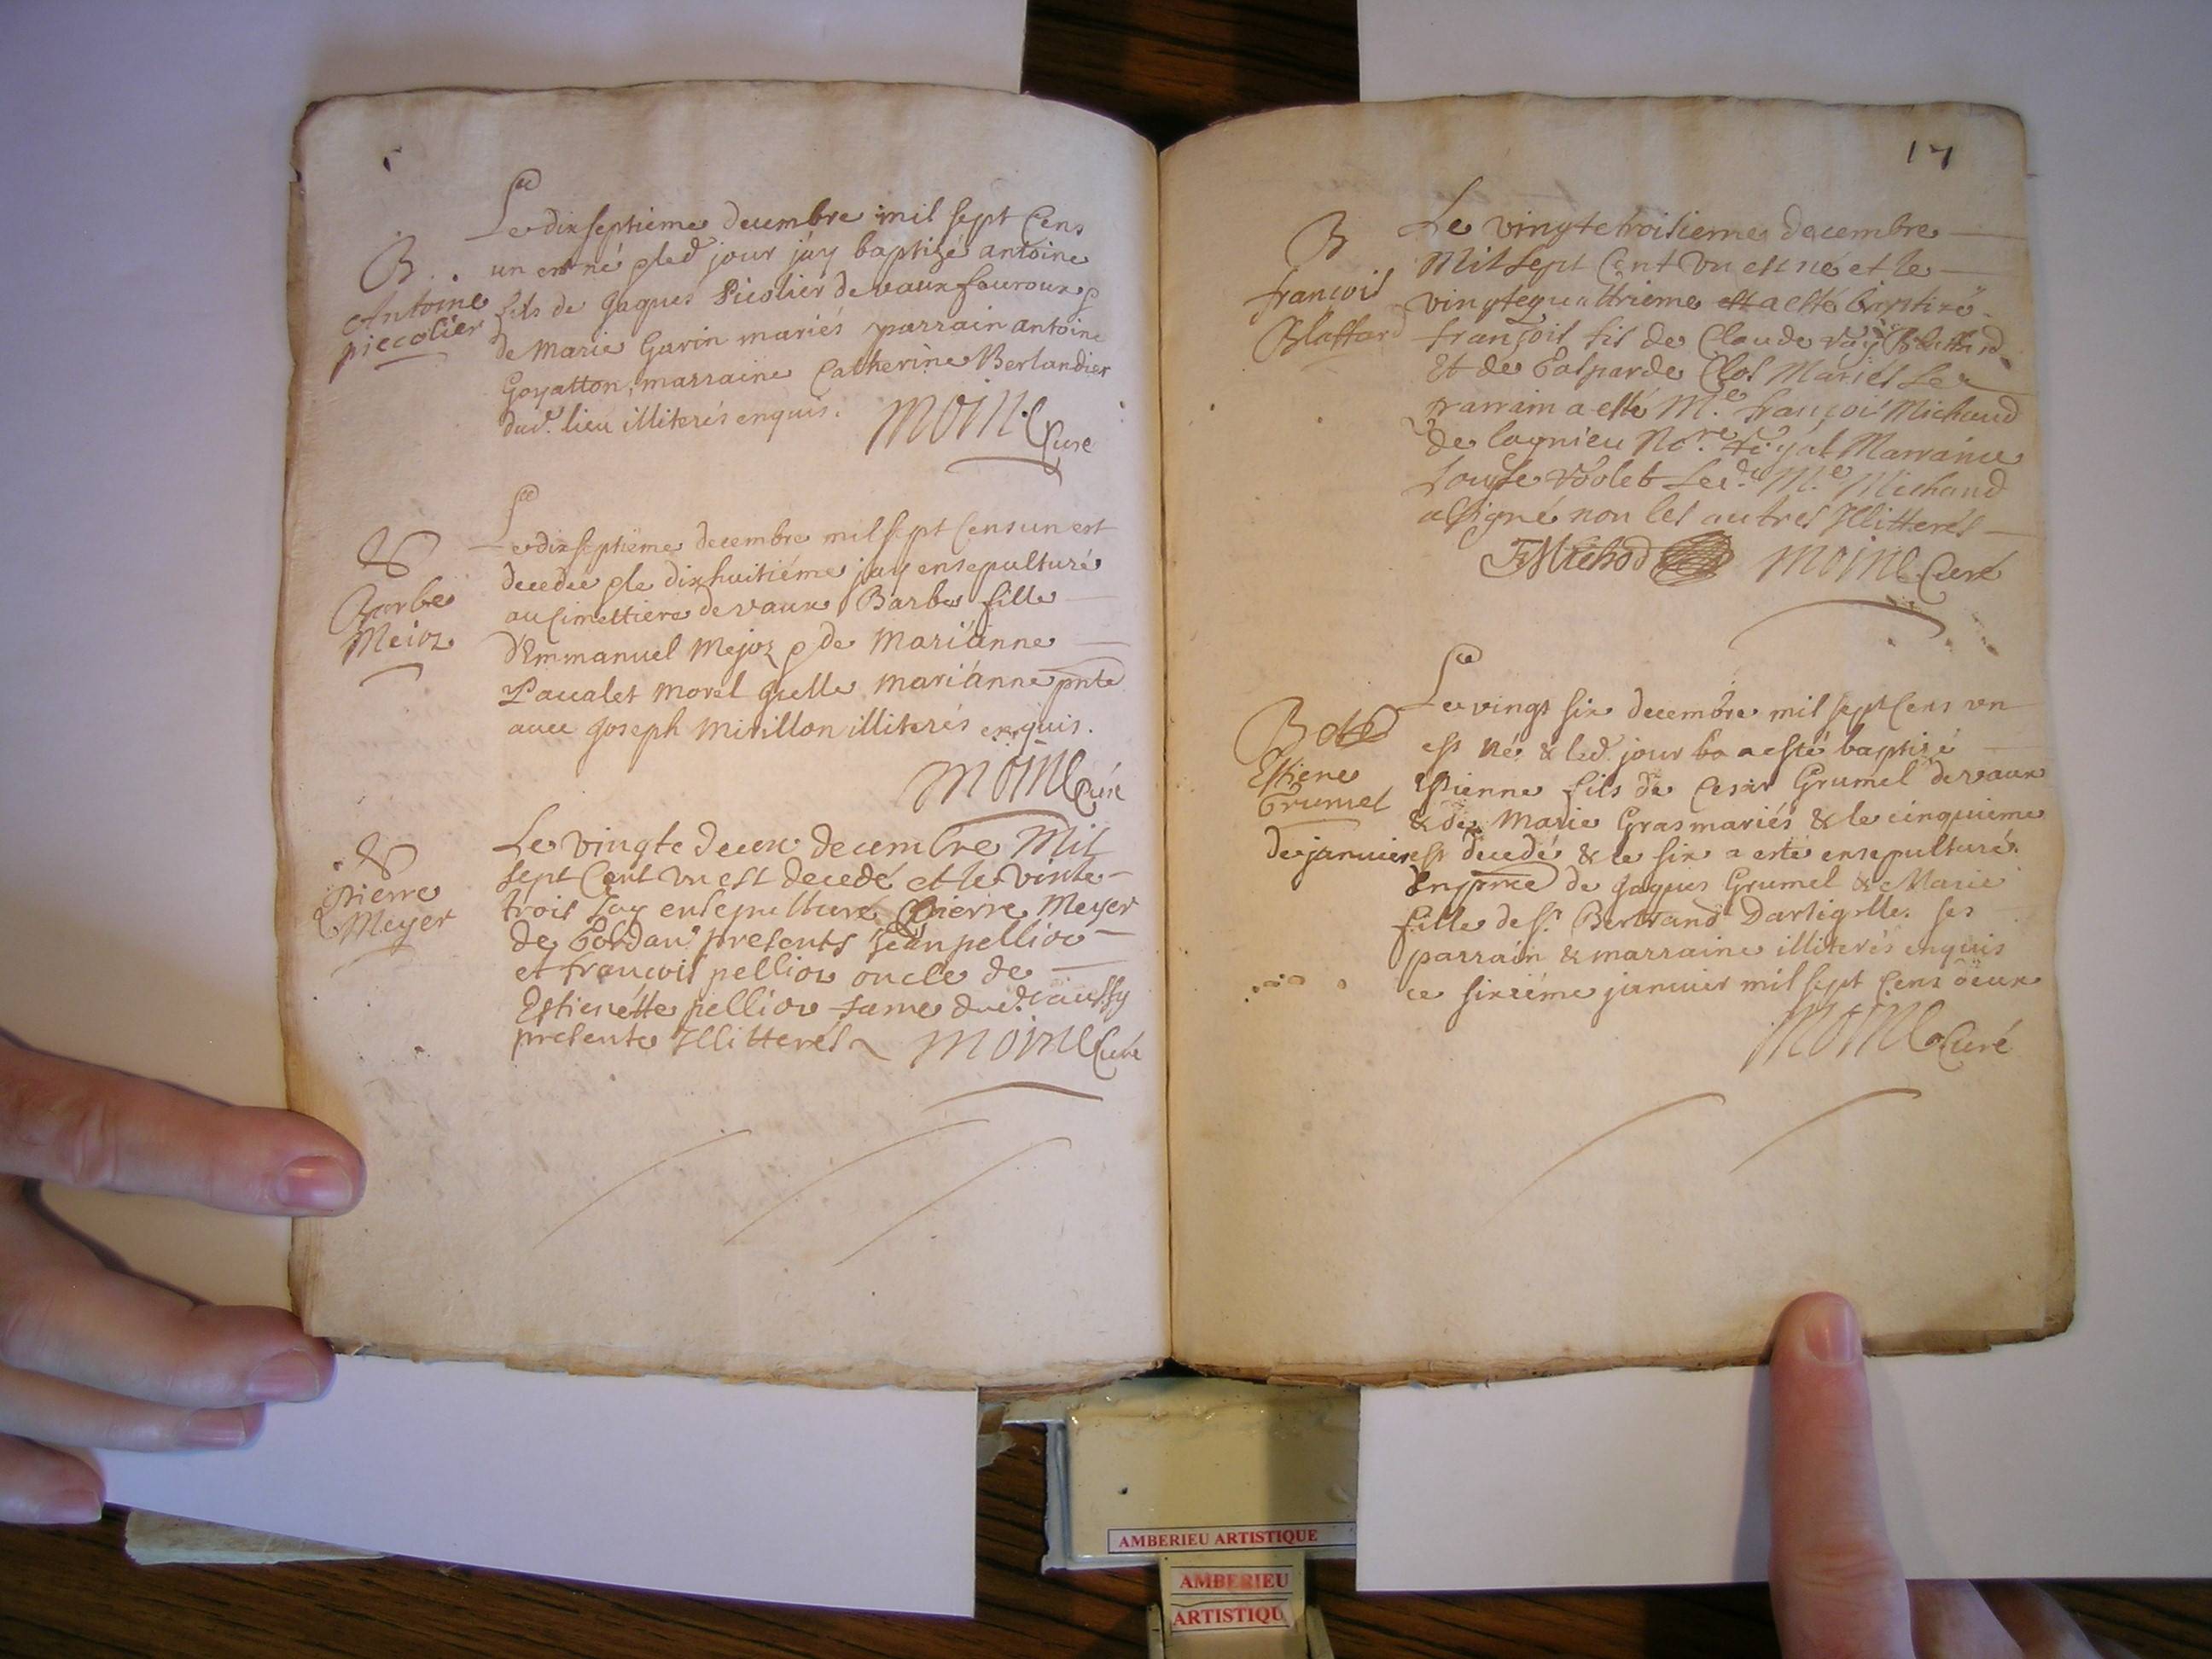 B
Antoine
piecolier
Le dixseptieme decembre mil sept Cens
un est né & led jour j'ay baptizé antoine
fils de Jaques Picolier de vaux fauroux &
de Marie Gavin mariés parrain antoine
Goyatton, marraine Catherine Berlandier
dud. lieu illiterés enquis.
Moine Curé
Barbe
Meioz
Le dixseptieme decembre mil sept Cens un est
decedée & le dixhuitiéme j'ay ensepulturé
au Cimettiere de vaux Barbe fille
d'Emmanuel Mejoz & de Marianne
Paualet Morel Marianne pnte
avec Joseph Mirillon illiterés enquis.
Moine Curé
Pierre
Meyer
Le vingte deux decembre Mil
sept Cent vn est decedé et le vinte
trois Jay ensepulturé Pierre Meyer
de presents Jean pellion
et francois pellion oncle de
Estienette pellion fame dud. aussy
presente Illitterés
Moine Curé
17
B
francois
Blaffard
Le vingte troisieme decembre
Mil sept Cent vn est né et le
vingte quattrieme est a esté baptizé
françois fis de Claude
Et de Gasparde Clos Mariés Le
parrain a esté M.e françois Michaud
de lagnieu No.re Royal Marraine
Louyse Violet Led. M.e Michaud
a signé non les autres Illitterés
FMichod
Moine Curé
B
Estiene
Grumel
Le vingt six decembre mil sept Cens vn
est né & led jour ba a esté baptizé
Estienne fils de Cesar Grumel de vaux
& de Marie Gras mariés & le cinquieme
de janvier est decedé & le six a esté ensepulturé
En pnce de Jaques Grumel & Marie
fille de Sr. Bertrand Dartigolle ses
parrain & marraine illiterés enquis
ce sixiéme janvier mil sept Cens deux
Moine Curé
AMBERIEU ARTISTIQUE
AMBERIEU
ARTISTIQU